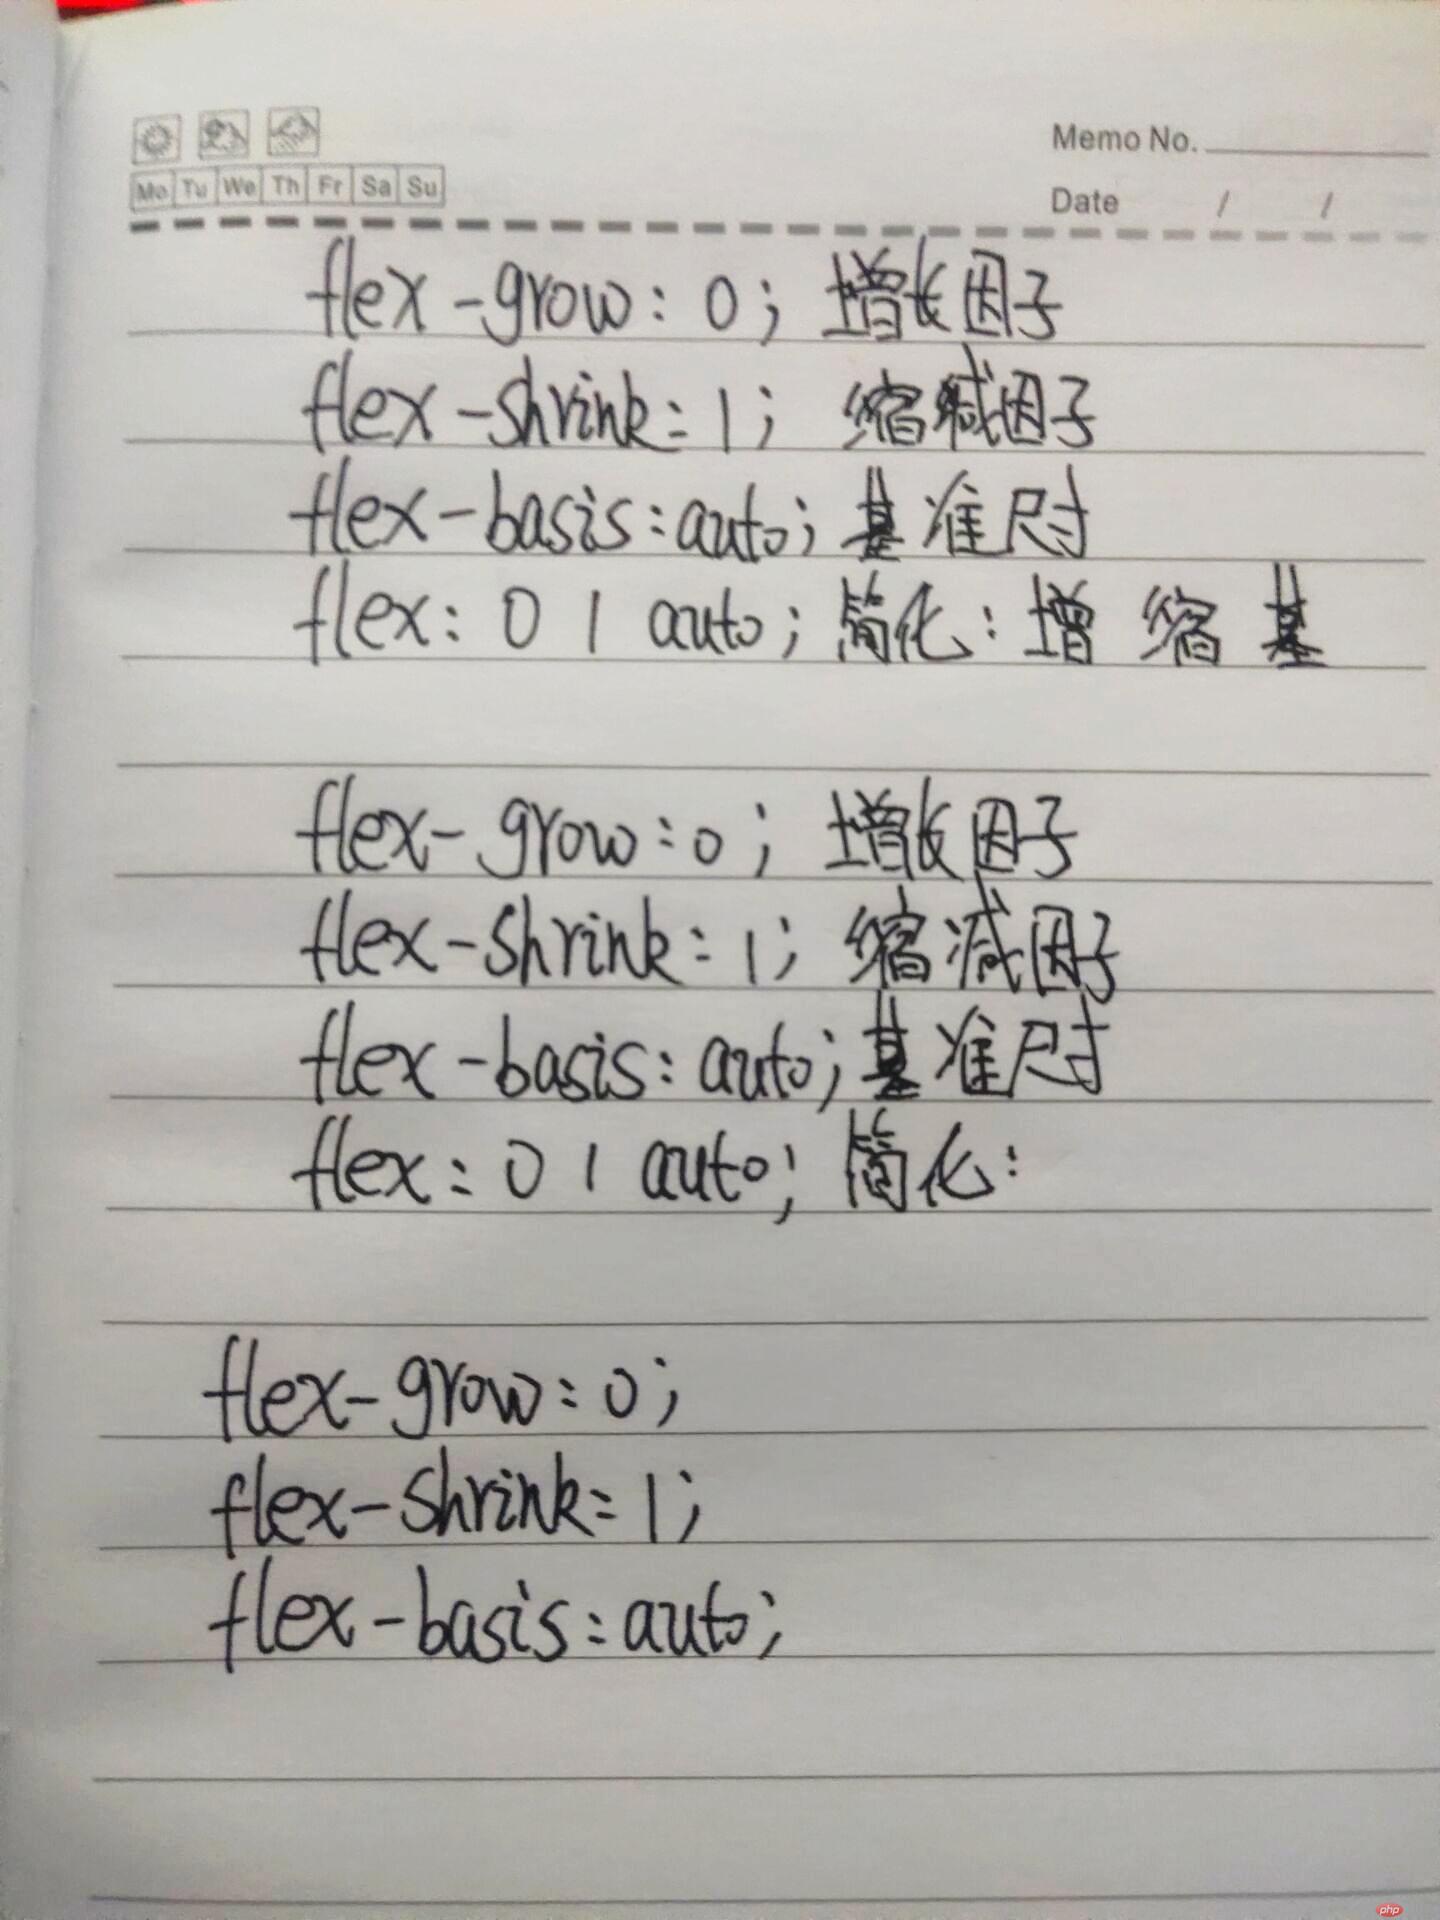 Mo Tu We Th Fr Sa Su
Memo No.
Date / /
flex-grow: 0; 增长因子
flex-shrink: 1; 缩减因子
flex-basis: auto; 基准尺寸
flex: 0 1 auto; 简化: 增 缩 基
flex-grow: 0; 增长因子
flex-shrink: 1; 缩减因子
flex-basis: auto; 基准尺寸
flex: 0 1 auto; 简化:
flex-grow: 0;
flex-shrink: 1;
flex-basis: auto;
php